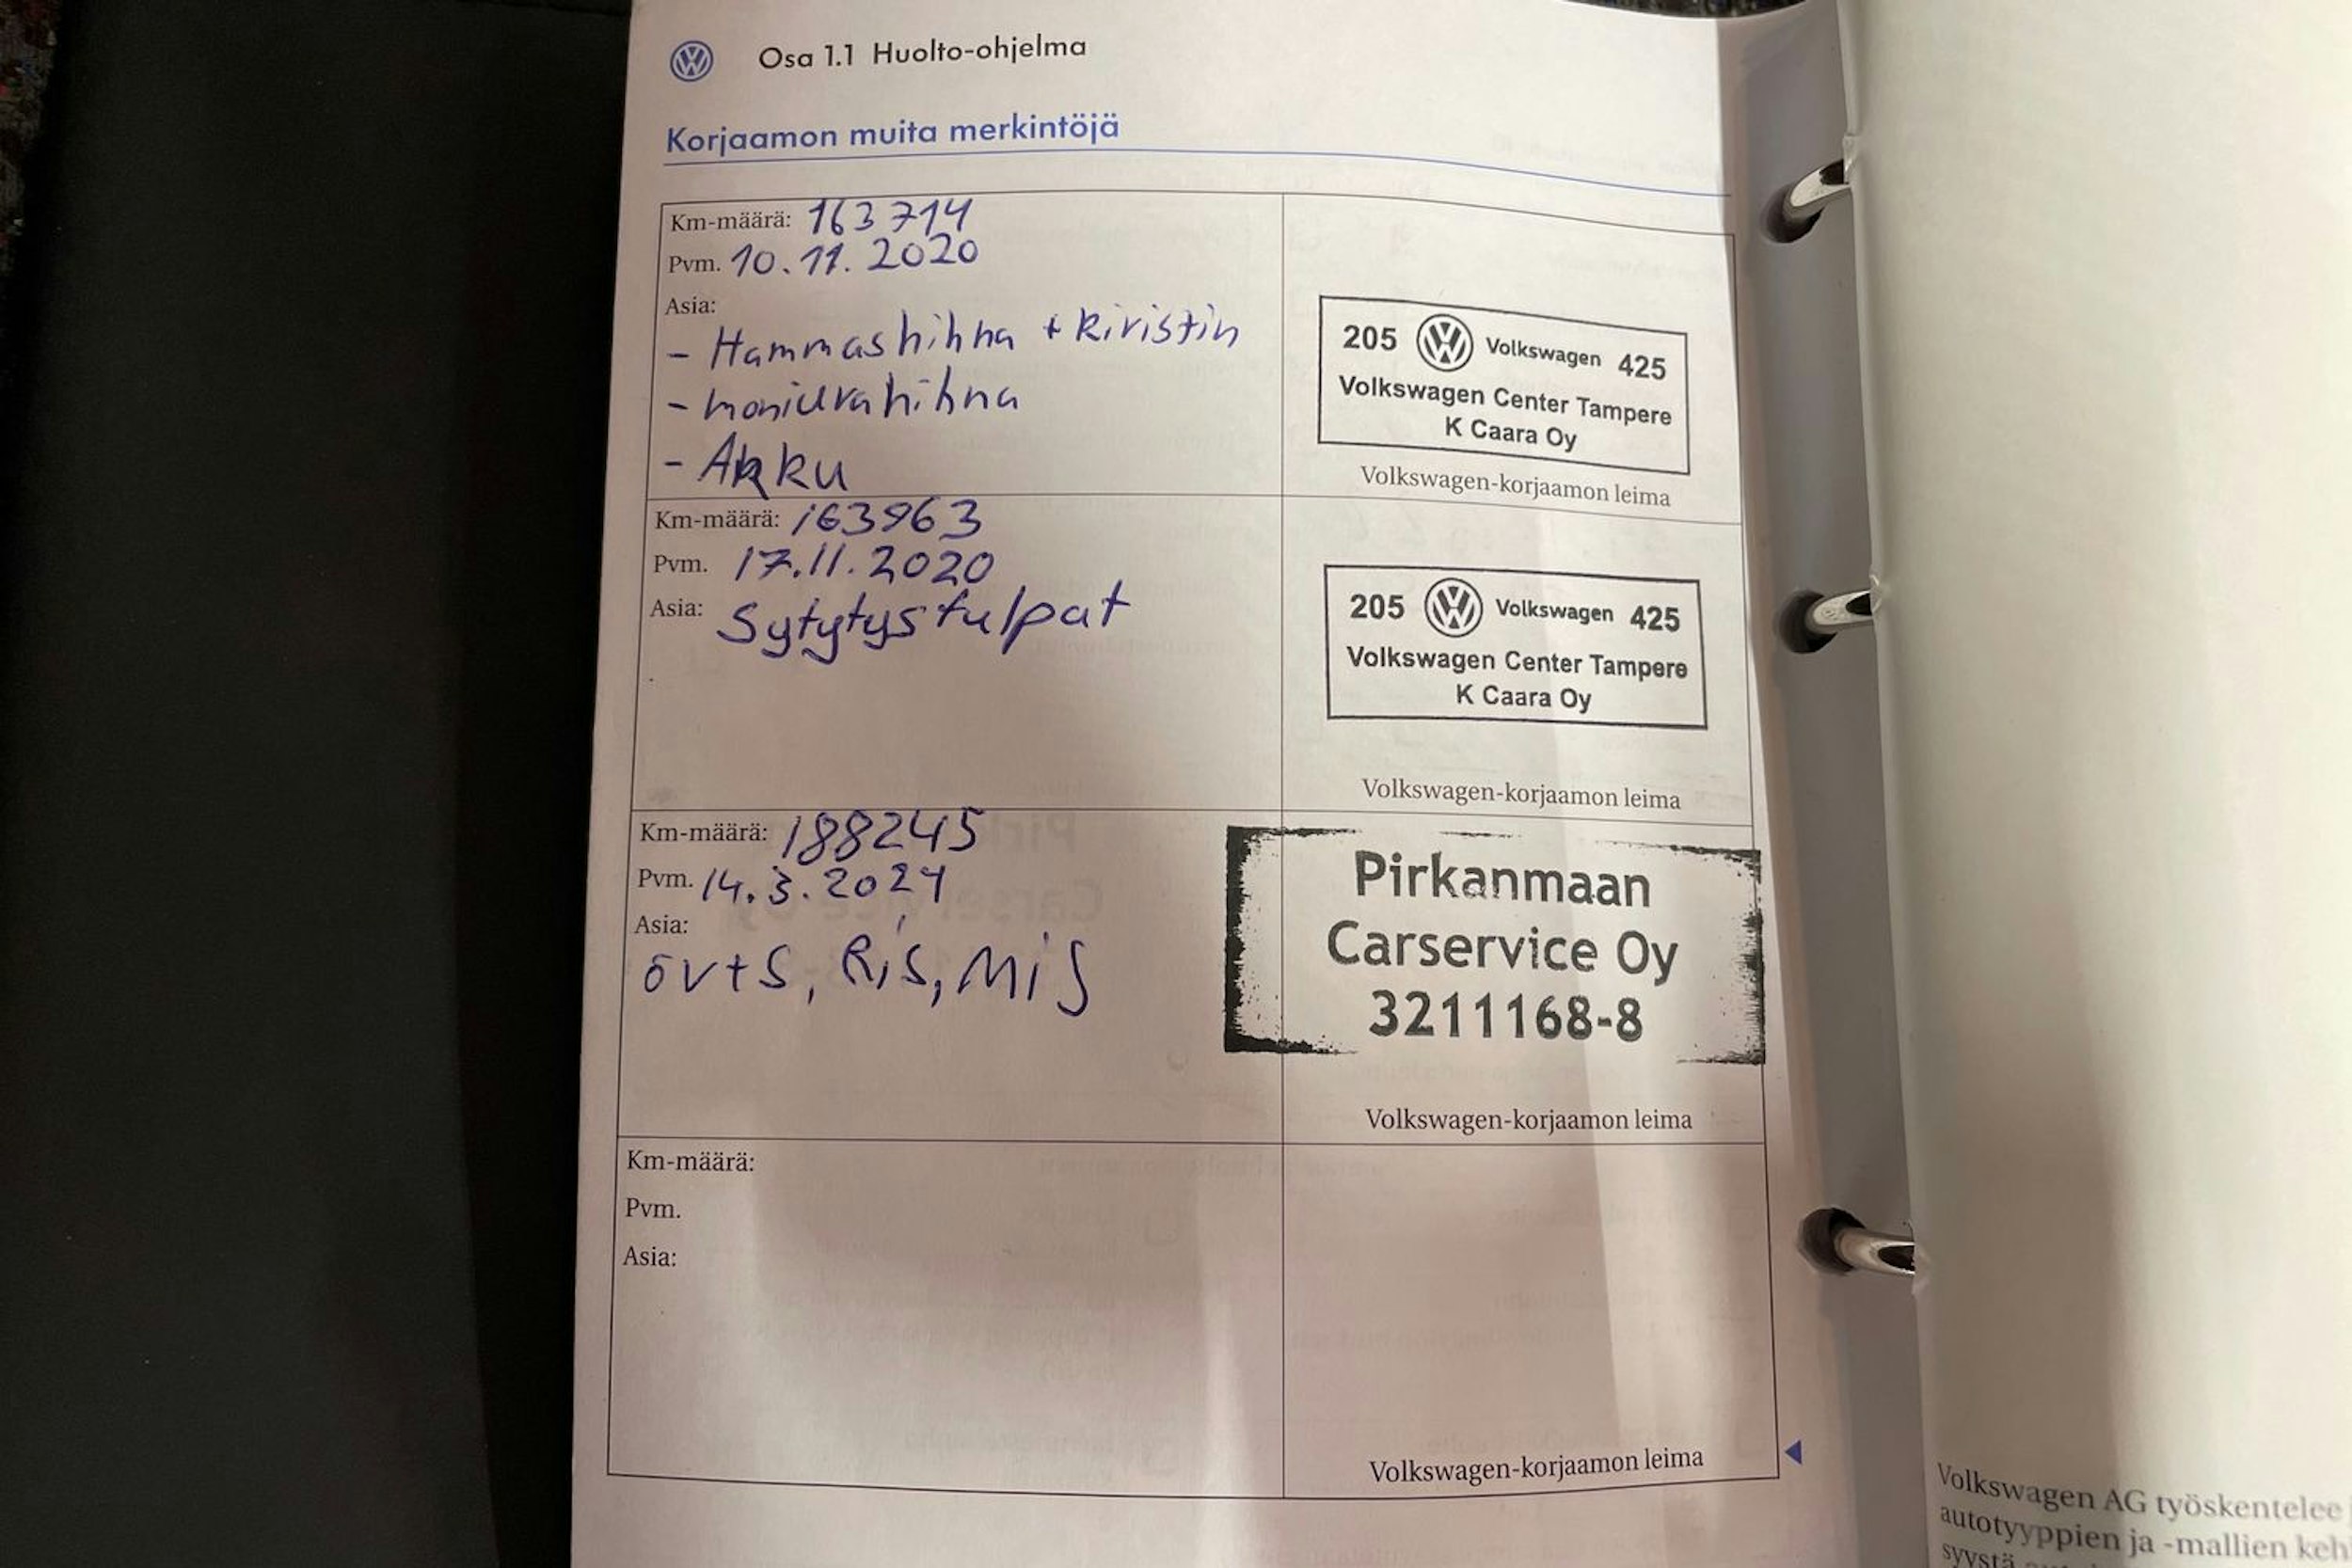 Osa 1.1 Huolto-ohjelma
Korjaamon muita merkintöjä
Km-määrä: 163 714
Pvm. 10.11.2020
Asia:
- Hammashihna + kiristin
- moniurahihna
- Akku
205 Volkswagen 425
Volkswagen Center Tampere
K Caara Oy
Volkswagen-korjaamon leima
Km-määrä: 163963
Pvm. 17.11.2020
Asia: Sytytystulpat
205 Volkswagen 425
Volkswagen Center Tampere
K Caara Oy
Volkswagen-korjaamon leima
Km-määrä: 188245
Pvm. 14.3.2024
Asia:
öv+s, Ris, Mis
Pirkanmaan
Carservice Oy
3211168-8
Volkswagen-korjaamon leima
Km-määrä:
Pvm.
Asia:
Volkswagen-korjaamon leima
Volkswagen AG työskentelee
autotyyppien ja -mallien